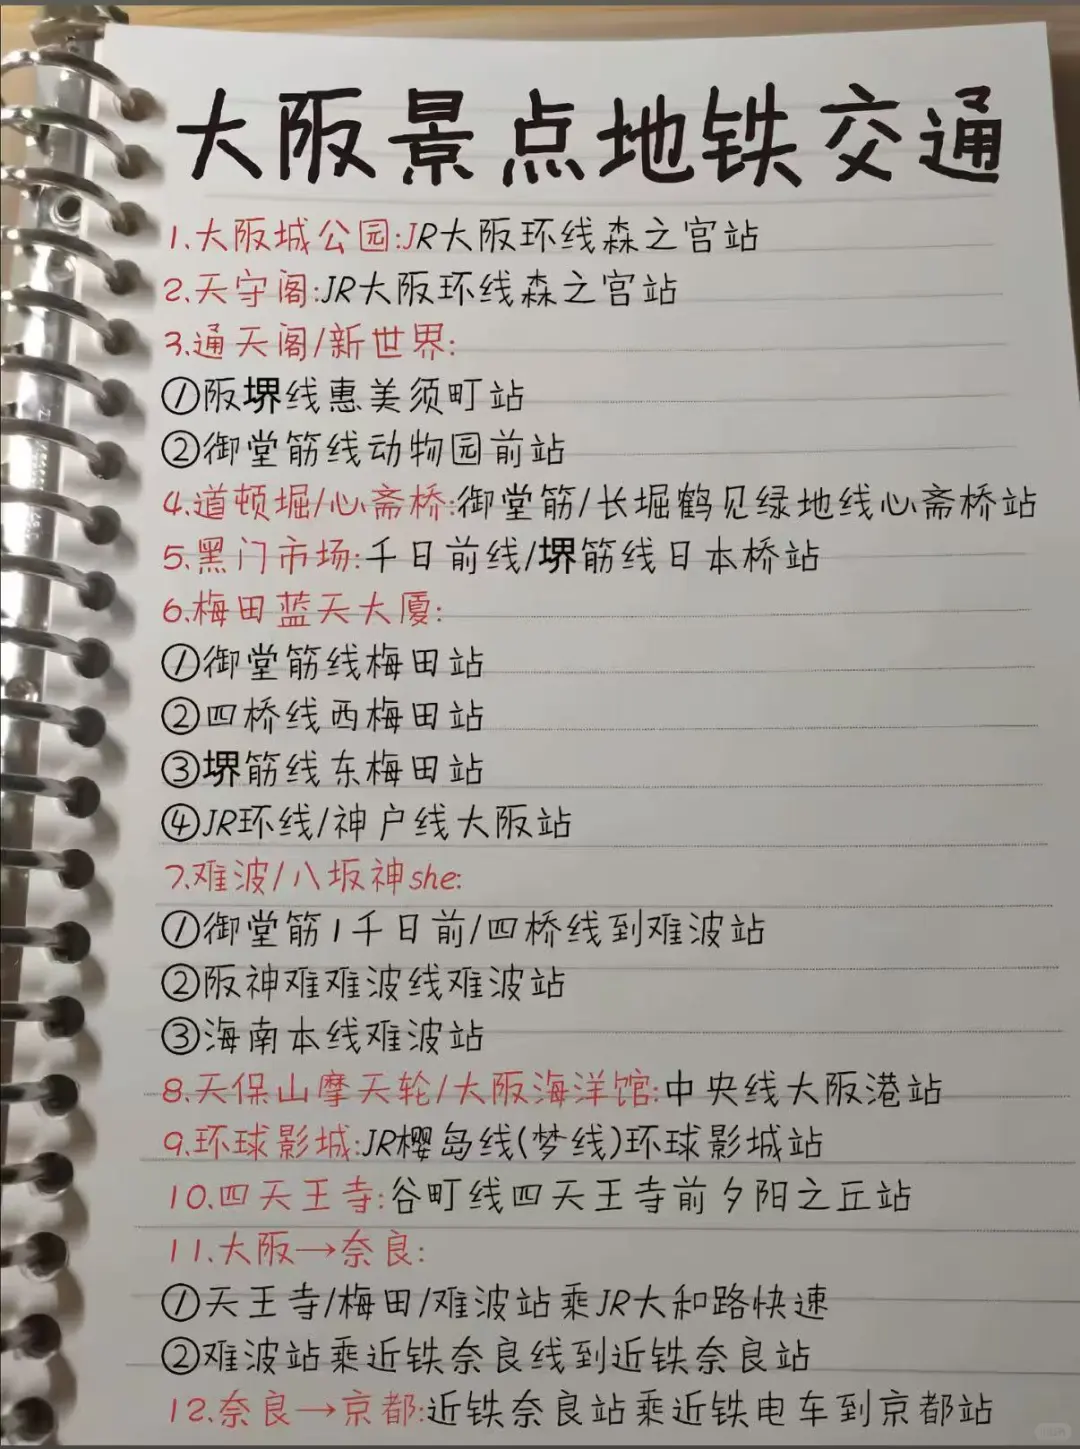 大阪景点地铁交通
1.大阪城公园:JR大阪环线森之宫站
2.天守阁:JR大阪环线森之宫站
3.通天阁/新世界:
①阪堺线惠美须町站
②御堂筋线动物园前站
4.道顿堀/心斋桥:御堂筋/长堀鹤见绿地线心斋桥站
5.黑门市场:千日前线/堺筋线日本桥站
6.梅田蓝天大厦:
①御堂筋线梅田站
②四桥线西梅田站
③堺筋线东梅田站
④JR环线/神户线大阪站
7.难波/八坂神she:
①御堂筋1千日前/四桥线到难波站
②阪神难难波线难波站
③海南本线难波站
8.天保山摩天轮/大阪海洋馆:中央线大阪港站
9.环球影城:JR樱岛线(梦线)环球影城站
10.四天王寺:谷町线四天王寺前夕阳之丘站
11.大阪→奈良:
①天王寺/梅田/难波站乘JR大和路快速
②难波站乘近铁奈良线到近铁奈良站
12.奈良→京都:近铁奈良站乘近铁电车到京都站